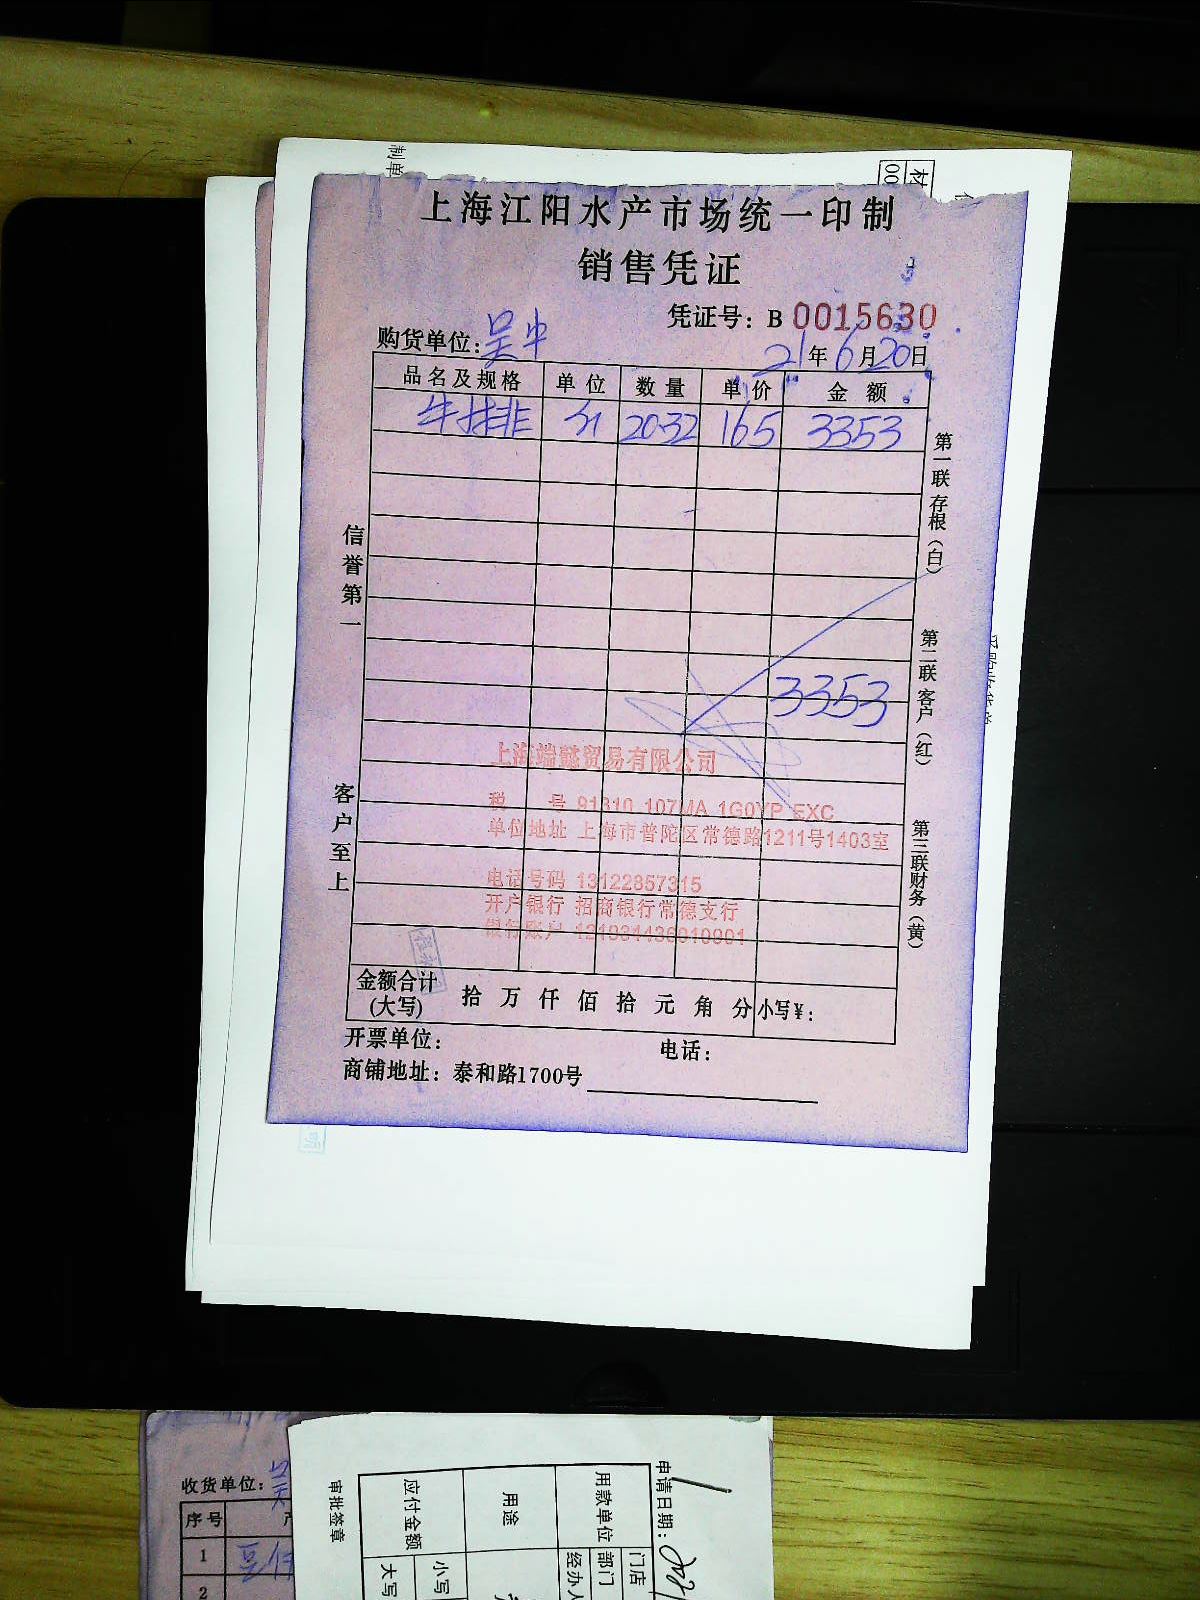 制单
材
00
上海江阳水产市场统一印制
销售凭证
凭证号：B 0015630
购货单位：吴中
21年6月20日
品名及规格 单位 数量 单价 金额
牛排 斤 20.32 165 3353
3353
信誉第一
客户至上
第一联存根（白）
第二联客户（红）
第三联财务（黄）
上海端懿贸易有限公司
税 号 91310 107MA 1G0YP EXC
单位地址 上海市普陀区常德路1211号1403室
电话号码 13122857315
开户银行 招商银行常德支行
银行账户 121931436910901
金额合计(大写) 拾 万 仟 佰 拾 元 角 分 小写¥：
开票单位： 电话：
商铺地址：泰和路1700号
收货单位：吴
序号
1
2
审批签章
应付金额
大写
小写
用途
用款单位
经办人
部门
门店
申请日期：